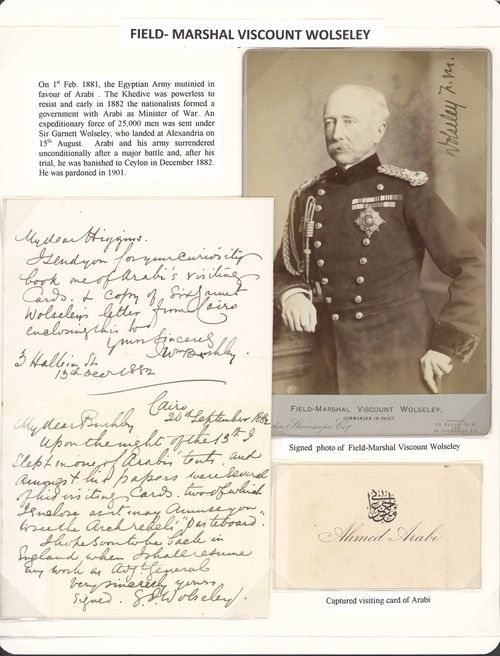 FIELD- MARSHAL VISCOUNT WOLSELEY
On 1st Feb. 1881, the Egyptian Army mutinied in
favour of Arabi . The Khedive was powerless to
resist and early in 1882 the nationalists formed a
government with Arabi as Minister of War. An
expeditionary force of 25,000 men was sent under
Sir Garnett Wolseley, who landed at Alexandria on
15th August. Arabi and his army surrendered
unconditionally after a major battle and, after his
trial, he was banished to Ceylon in December 1882.
He was pardoned in 1901.
Wolseley F.M.
My dear Higgins.
I send you for your curiosity
book one of Arabi's visiting
Cards. & copy of Sir Garnet
Wolseley's letter from Cairo
enclosing this
yours sincerely
Wm
3 St
13th Decr 1882
Cairo
20th September 1882
My dear
Upon the night of the 13th I
slept in one of Arabi's tents, and
amongst his papers were several
of his visiting Cards. two of which
I enclose as it may amuse you
to see the Arch rebel's "Pasteboard.
I hope soon to be back in
England when I shall resume
my work as Adjt General
Very sincerely yours
Signed. G.J. Wolseley.
FIELD-MARSHAL VISCOUNT WOLSELEY,
COMMANDER-IN-CHIEF.
Stereoscopic Coy
Signed photo of Field-Marshal Viscount Wolseley
Ahmed Arabi
Captured visiting card of Arabi